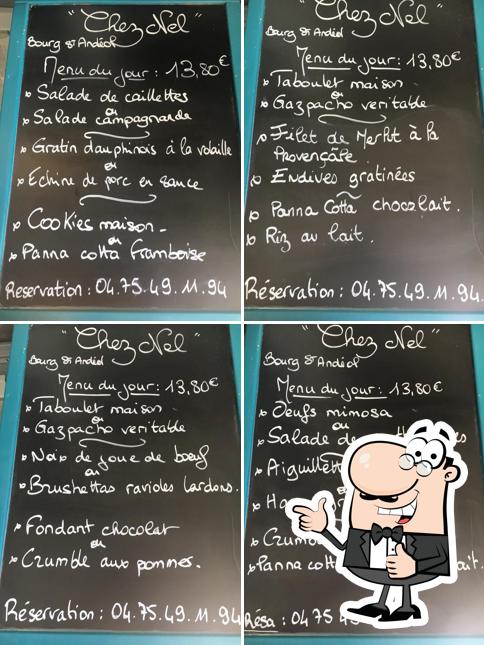 "Chez Nel"
Bourg St Andéol
Menu du jour : 13,80€
* Salade de caillettes
ou
* Salade campagnarde
* Gratin dauphinois à la volaille
ou
* Echine de porc en sauce
* Cookies maison.
ou
* Panna cotta framboise
Réservation : 04.75.49.11.94
"Chez Nel"
Bourg St Andéol
Menu du jour : 13,80€
* Taboulet maison
ou
* Gazpacho veritable
* Filet de Merlut à la
Provençale.
* Endives gratinées
* Panna Cotta chocolait.
* Riz au lait.
Réservation : 04.75.49.11.94.
"Chez Nel"
Bourg St Andéol
Menu du jour : 13,80€
* Taboulet maison
ou
* Gazpacho veritable
* Noix de joue de bœuf
ou
* Brushettas ravioles lardons.
* Fondant chocolat
ou
* Crumble aux pommes.
Réservation : 04.75.49.11.94
"Chez Nel"
Bourg St Andéol
Menu du jour : 13,80€
* Oeufs mimosa
ou
* Salade de
* Panna
Résa : 04 75